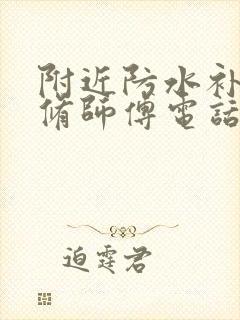 附近防水补
脩師傅電話
迫霆君